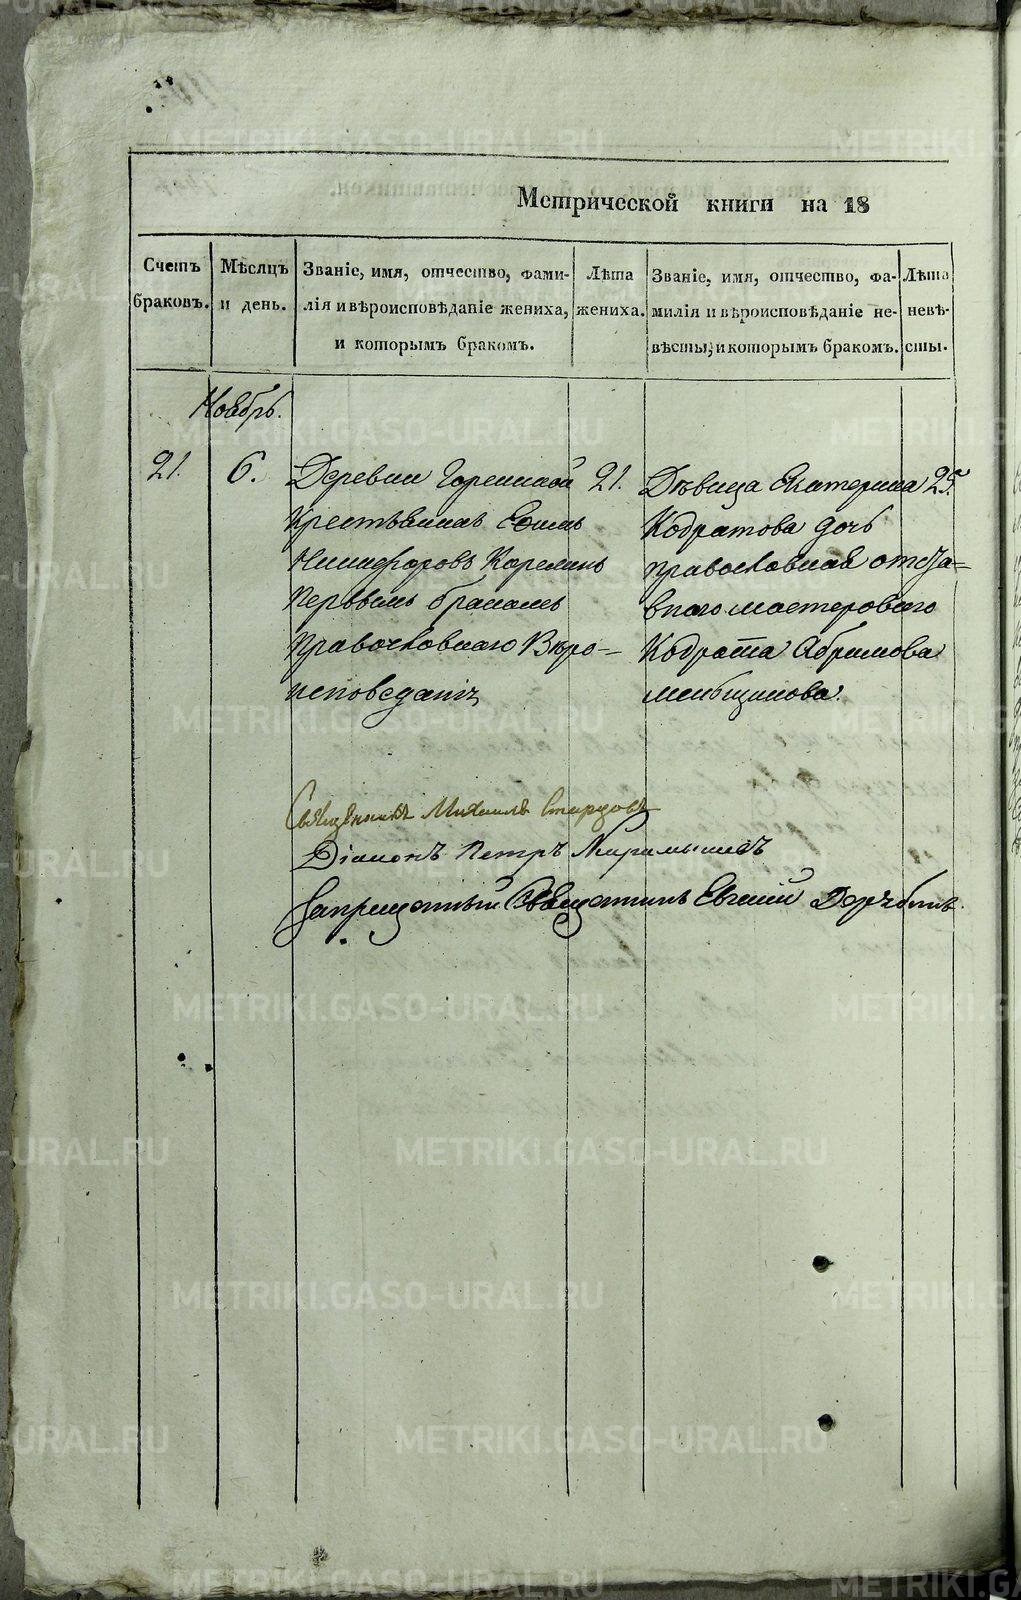 Метрической книги на 18
Счетъ браковъ.
Мѣсяцъ и день.
Званіе, имя, отчество, фами-
лія и вѣроисповѣданіе жениха,
и которымъ бракомъ.
Лѣта
жениха.
Званіе, имя, отчество, фа-
милія и вѣроисповѣданіе не-
вѣсты, и которымъ бракомъ.
Лѣта
невѣ-
сты.
Ноябрь.
21.
6.
Деревни
Крестьянинъ
Никифоровъ Карелинъ
Первымъ бракомъ
Православнаго Вѣро-
исповеданія
21.
Дѣвица Екатерина
Кодратова дочь
православная отста-
внаго мастероваго
Кодрата Абрамова
меньщикова.
25.
Священникъ Михаилъ
Діаконъ Петръ
Запрещенный Священникъ Евгений
METRIKI.GASO-URAL.RU